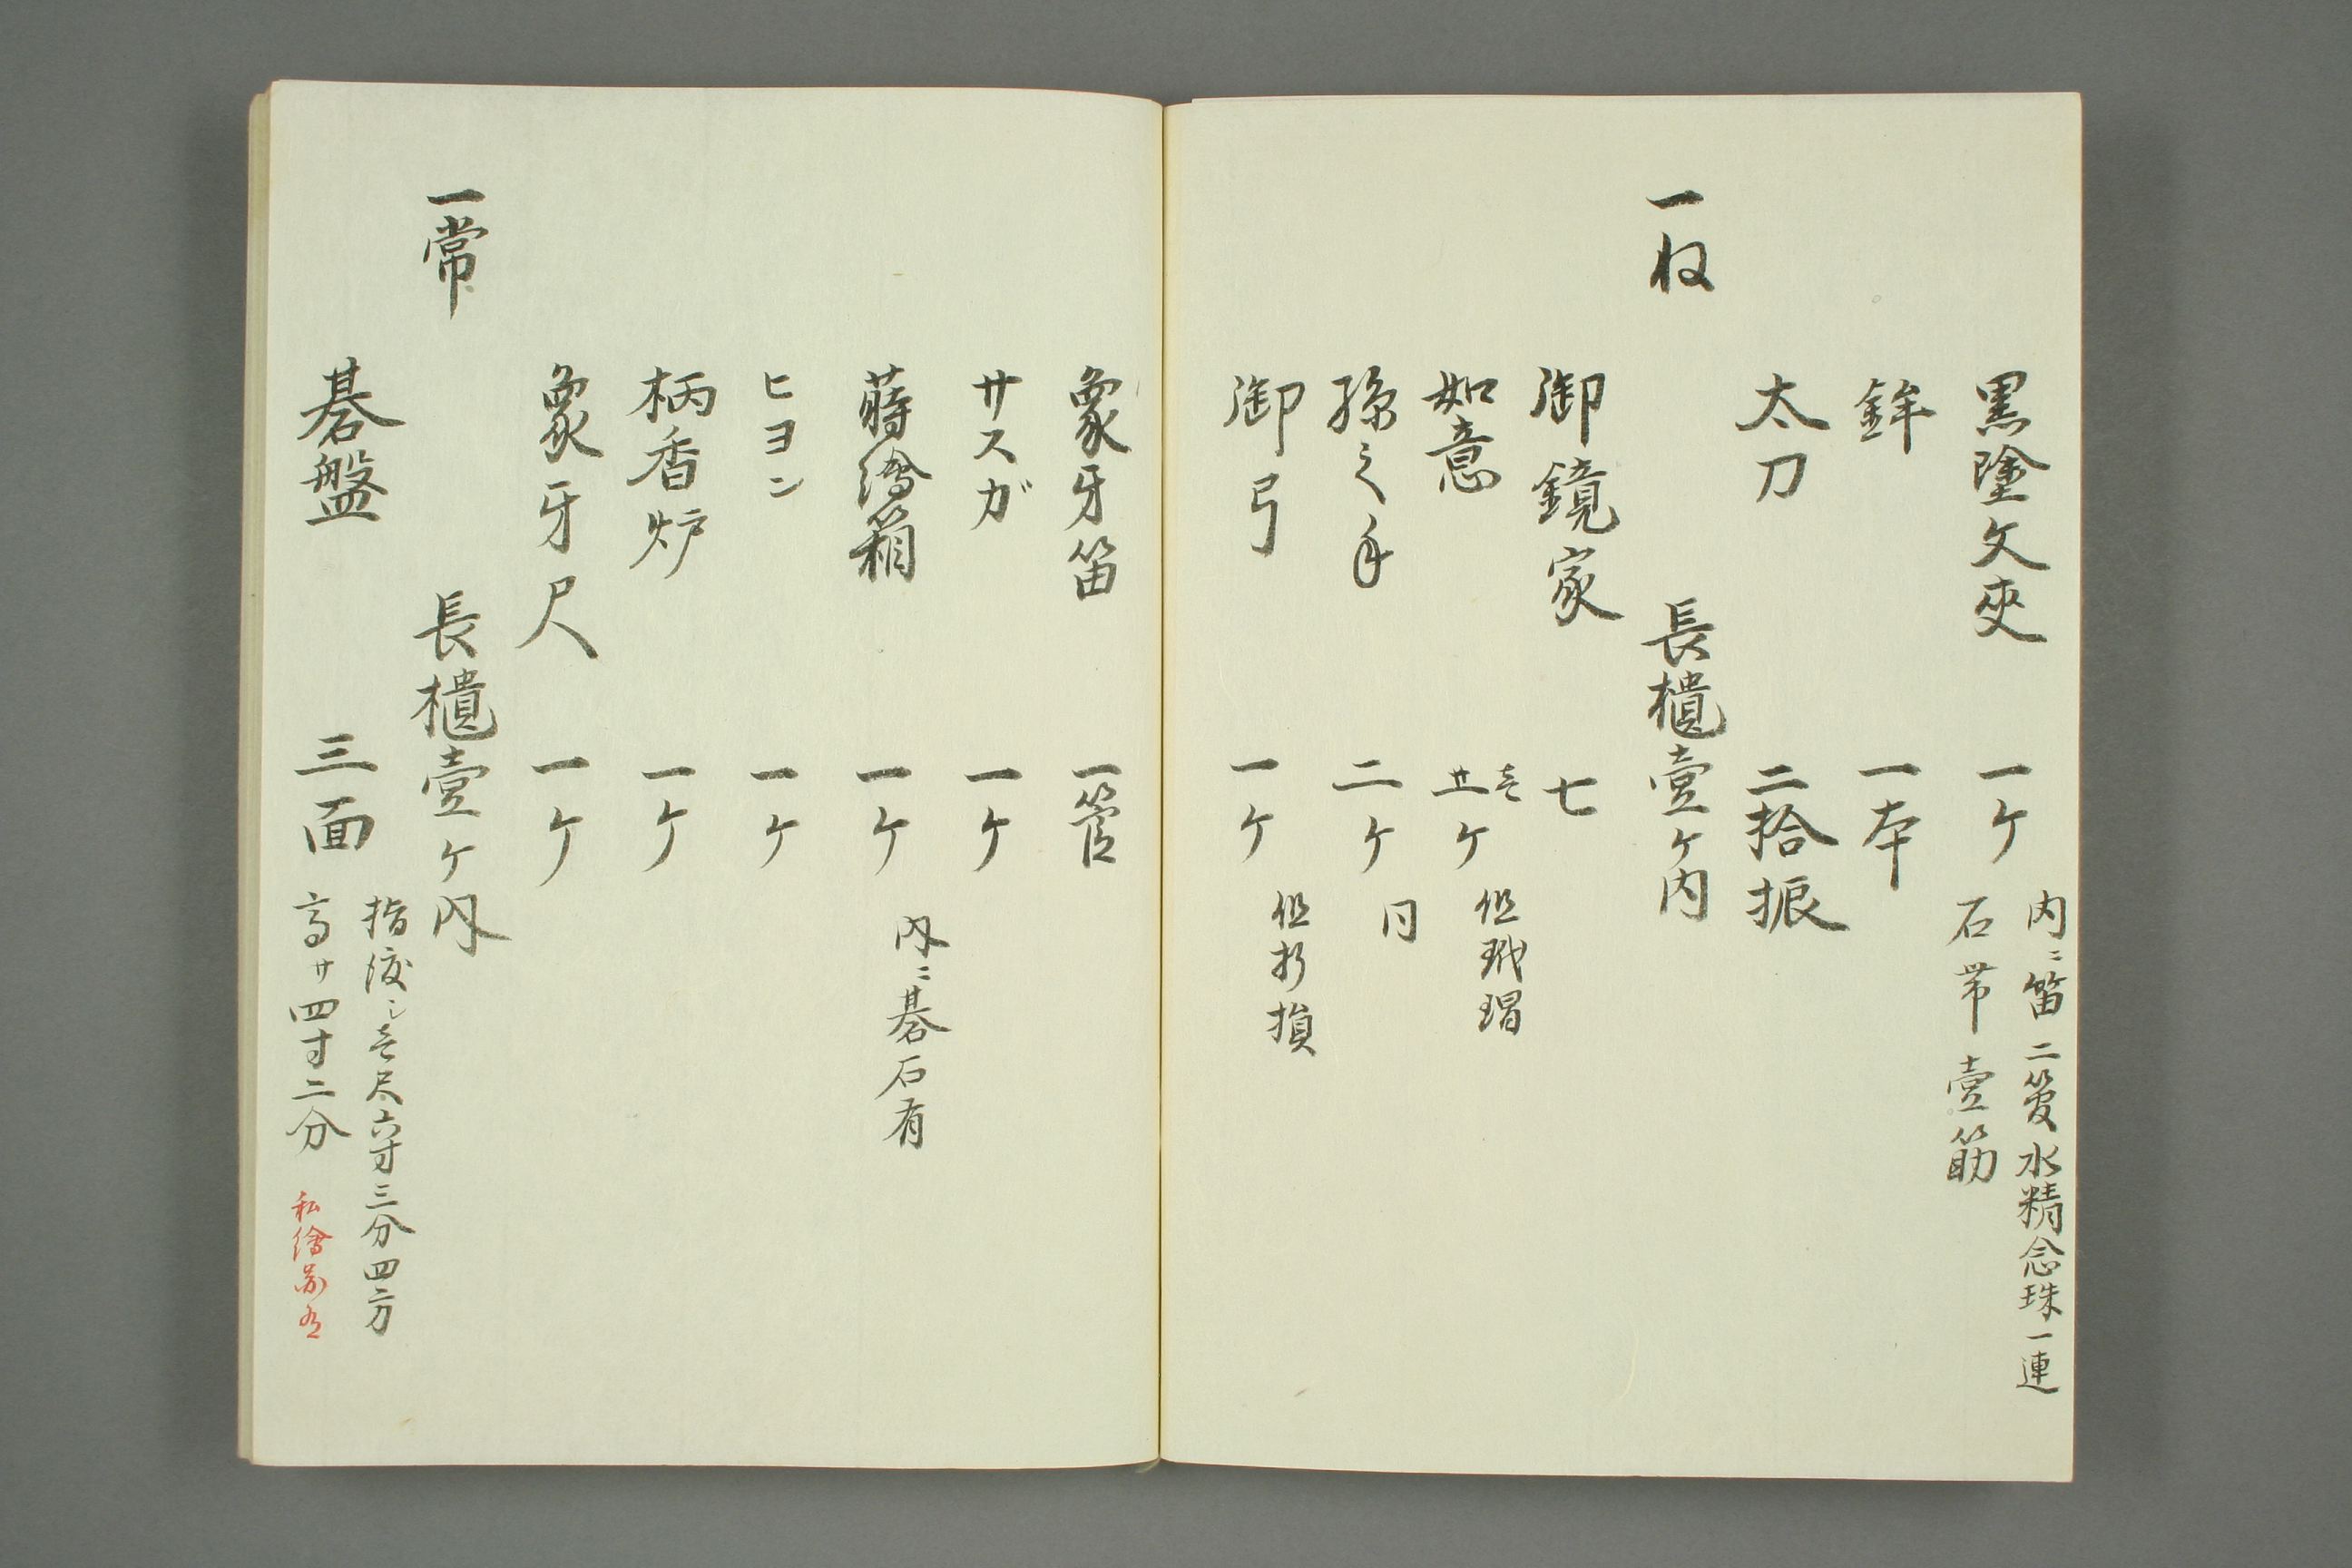 黒塗文夾 一ケ 内ニ笛二管水精念珠一連
石帯壹筋
鉾 一本
太刀 二拾振
一ね 長櫃壹ケ内
御鏡家 七
如意 壱ケ 但玳瑁
孫之手 二ケ 同
御弓 一ケ 但折損
象牙笛 一管
サスガ 一ケ
蒔繪箱 一ケ 内ニ碁石有
ヒヨン 一ケ
柄香炉 一ケ
象牙尺 一ケ
一常 長櫃壹ケ内
碁盤 三面 指渡シ壱尺六寸三分四方
高サ四寸二分 私繪